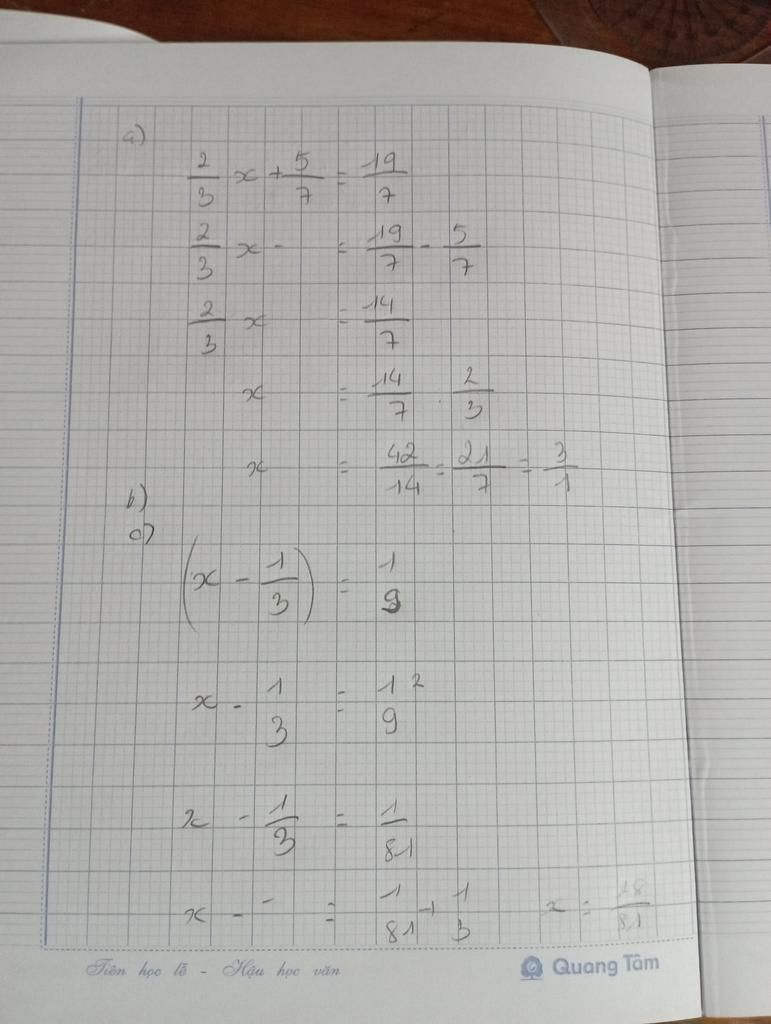 a)
2/3 x + 5/7 = 19/7
2/3 x - = 19/7 - 5/7
2/3 x = 14/7
x = 14/7 . 2/3
x = 42/14 = 21/7 = 3/1
b)
c)
(x - 1/3) = 1/9
x - 1/3 = 1²/9
x - 1/3 = 1/81
x - - = 1/81 + 1/3 x = 28/81
Tiên học lễ - Hậu học văn
Quang Tâm